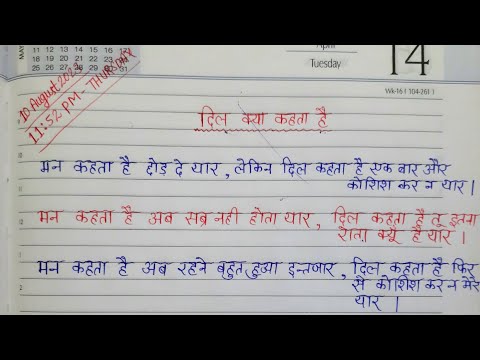 MAY
11 12 13 14
18 19 20 21
25 26 27 28 29 30 31
April
Tuesday
14
Wk-16 (104-261)
10 August 2023
11:52 PM - THURSDAY
दिल क्या कहता है
मन कहता है छोड़ दे यार, लेकिन दिल कहता है एक बार और
कोशिश कर न यार।
मन कहता है अब सब्र नही होता यार, दिल कहता है तू इतना
रोता क्यूँ है यार।
मन कहता है अब रहने बहुत हुआ इन्तजार, दिल कहता है फिर
से कोशिश कर न मेरे
यार।